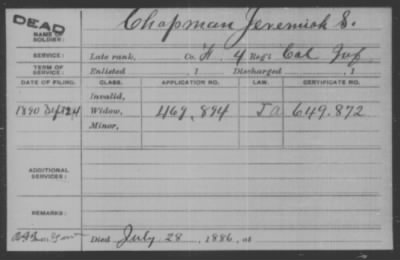 DEAD
NAME OF SOLDIER: Chapman Jeremiah S.
SERVICE: Late rank, Co. A. 4 Reg't Cal Inf
TERM OF SERVICE: Enlisted , 1 Discharged , 1
DATE OF FILING. CLASS. APPLICATION NO. LAW. CERTIFICATE NO.
Invalid,
1890 Widow, 469,894 649.872
Minor,
ADDITIONAL SERVICES:
REMARKS:
Died July 28, 1886, at